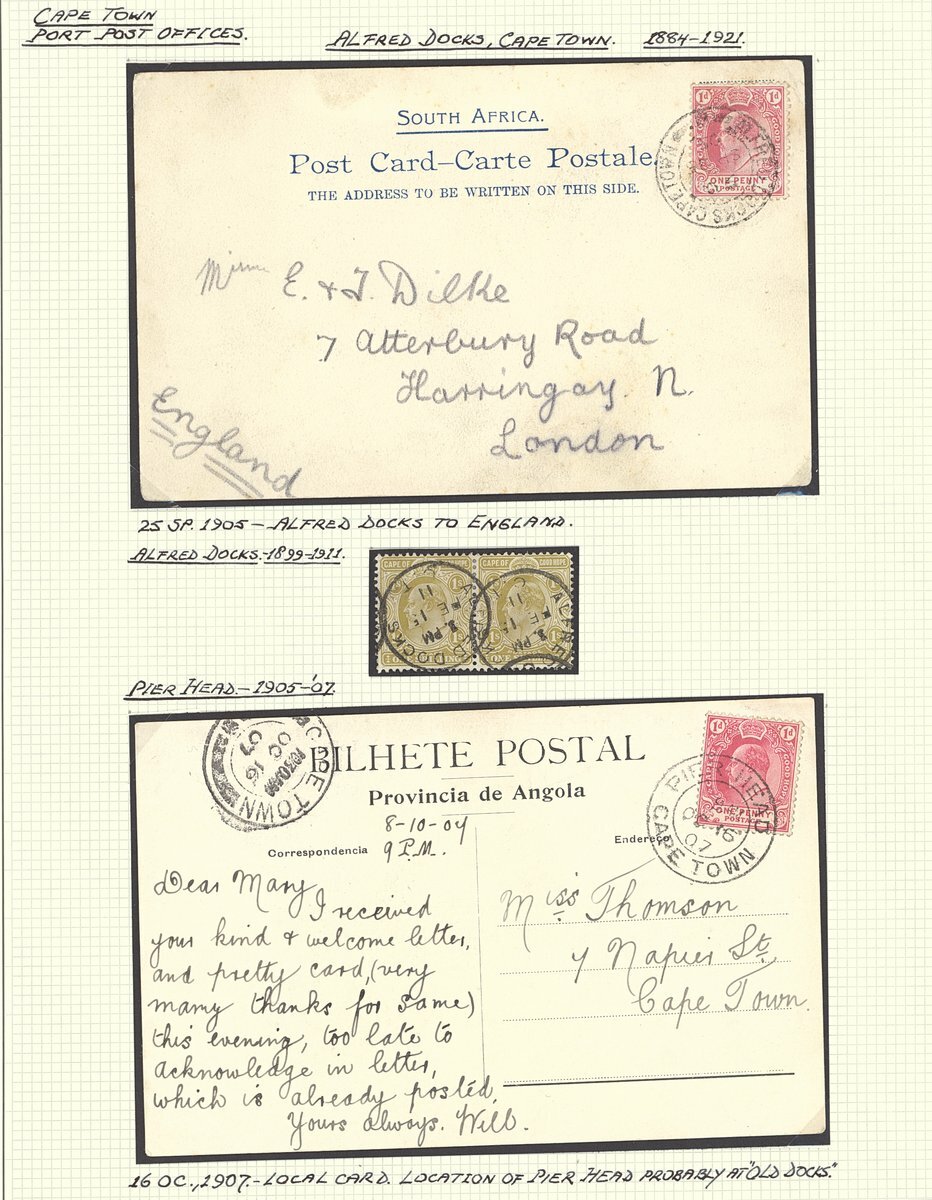 CAPE TOWN
PORT POST OFFICES.
ALFRED DOCKS, CAPE TOWN. 1884-1921.
SOUTH AFRICA.
Post Card—Carte Postale.
THE ADDRESS TO BE WRITTEN ON THIS SIDE.
1d 1d
ONE PENNY
POSTAGE
DOCKS CAPE TOWN
E. & T. Dilke
7 Atterbury Road
Harringay. N.
London
England
25 SP. 1905 - ALFRED DOCKS TO ENGLAND.
ALFRED DOCKS. -1899-1911.
CAPE OF GOOD HOPE
1s 1s
DOCKS
3. PM
FE 15
11
PIER HEAD - 1905-'07.
CAPE TOWN
10 30 AM
OC 16
07
BILHETE POSTAL
Provincia de Angola
1d 1d
GOOD HOPE
ONE PENNY
POSTAGE
PIER HEAD
OC 16
07
CAPE TOWN
8-10-07
Correspondencia 9 P.M.
Dear Mary
I received
your kind & welcome letter,
and pretty card, (very
many thanks for same)
this evening, too late to
acknowledge in letter,
which is already posted.
Yours always. Will.
Miss Thomson
7 Napier St.
Cape Town
16 OC., 1907.- LOCAL CARD. LOCATION OF PIER HEAD PROBABLY AT "OLD DOCKS".